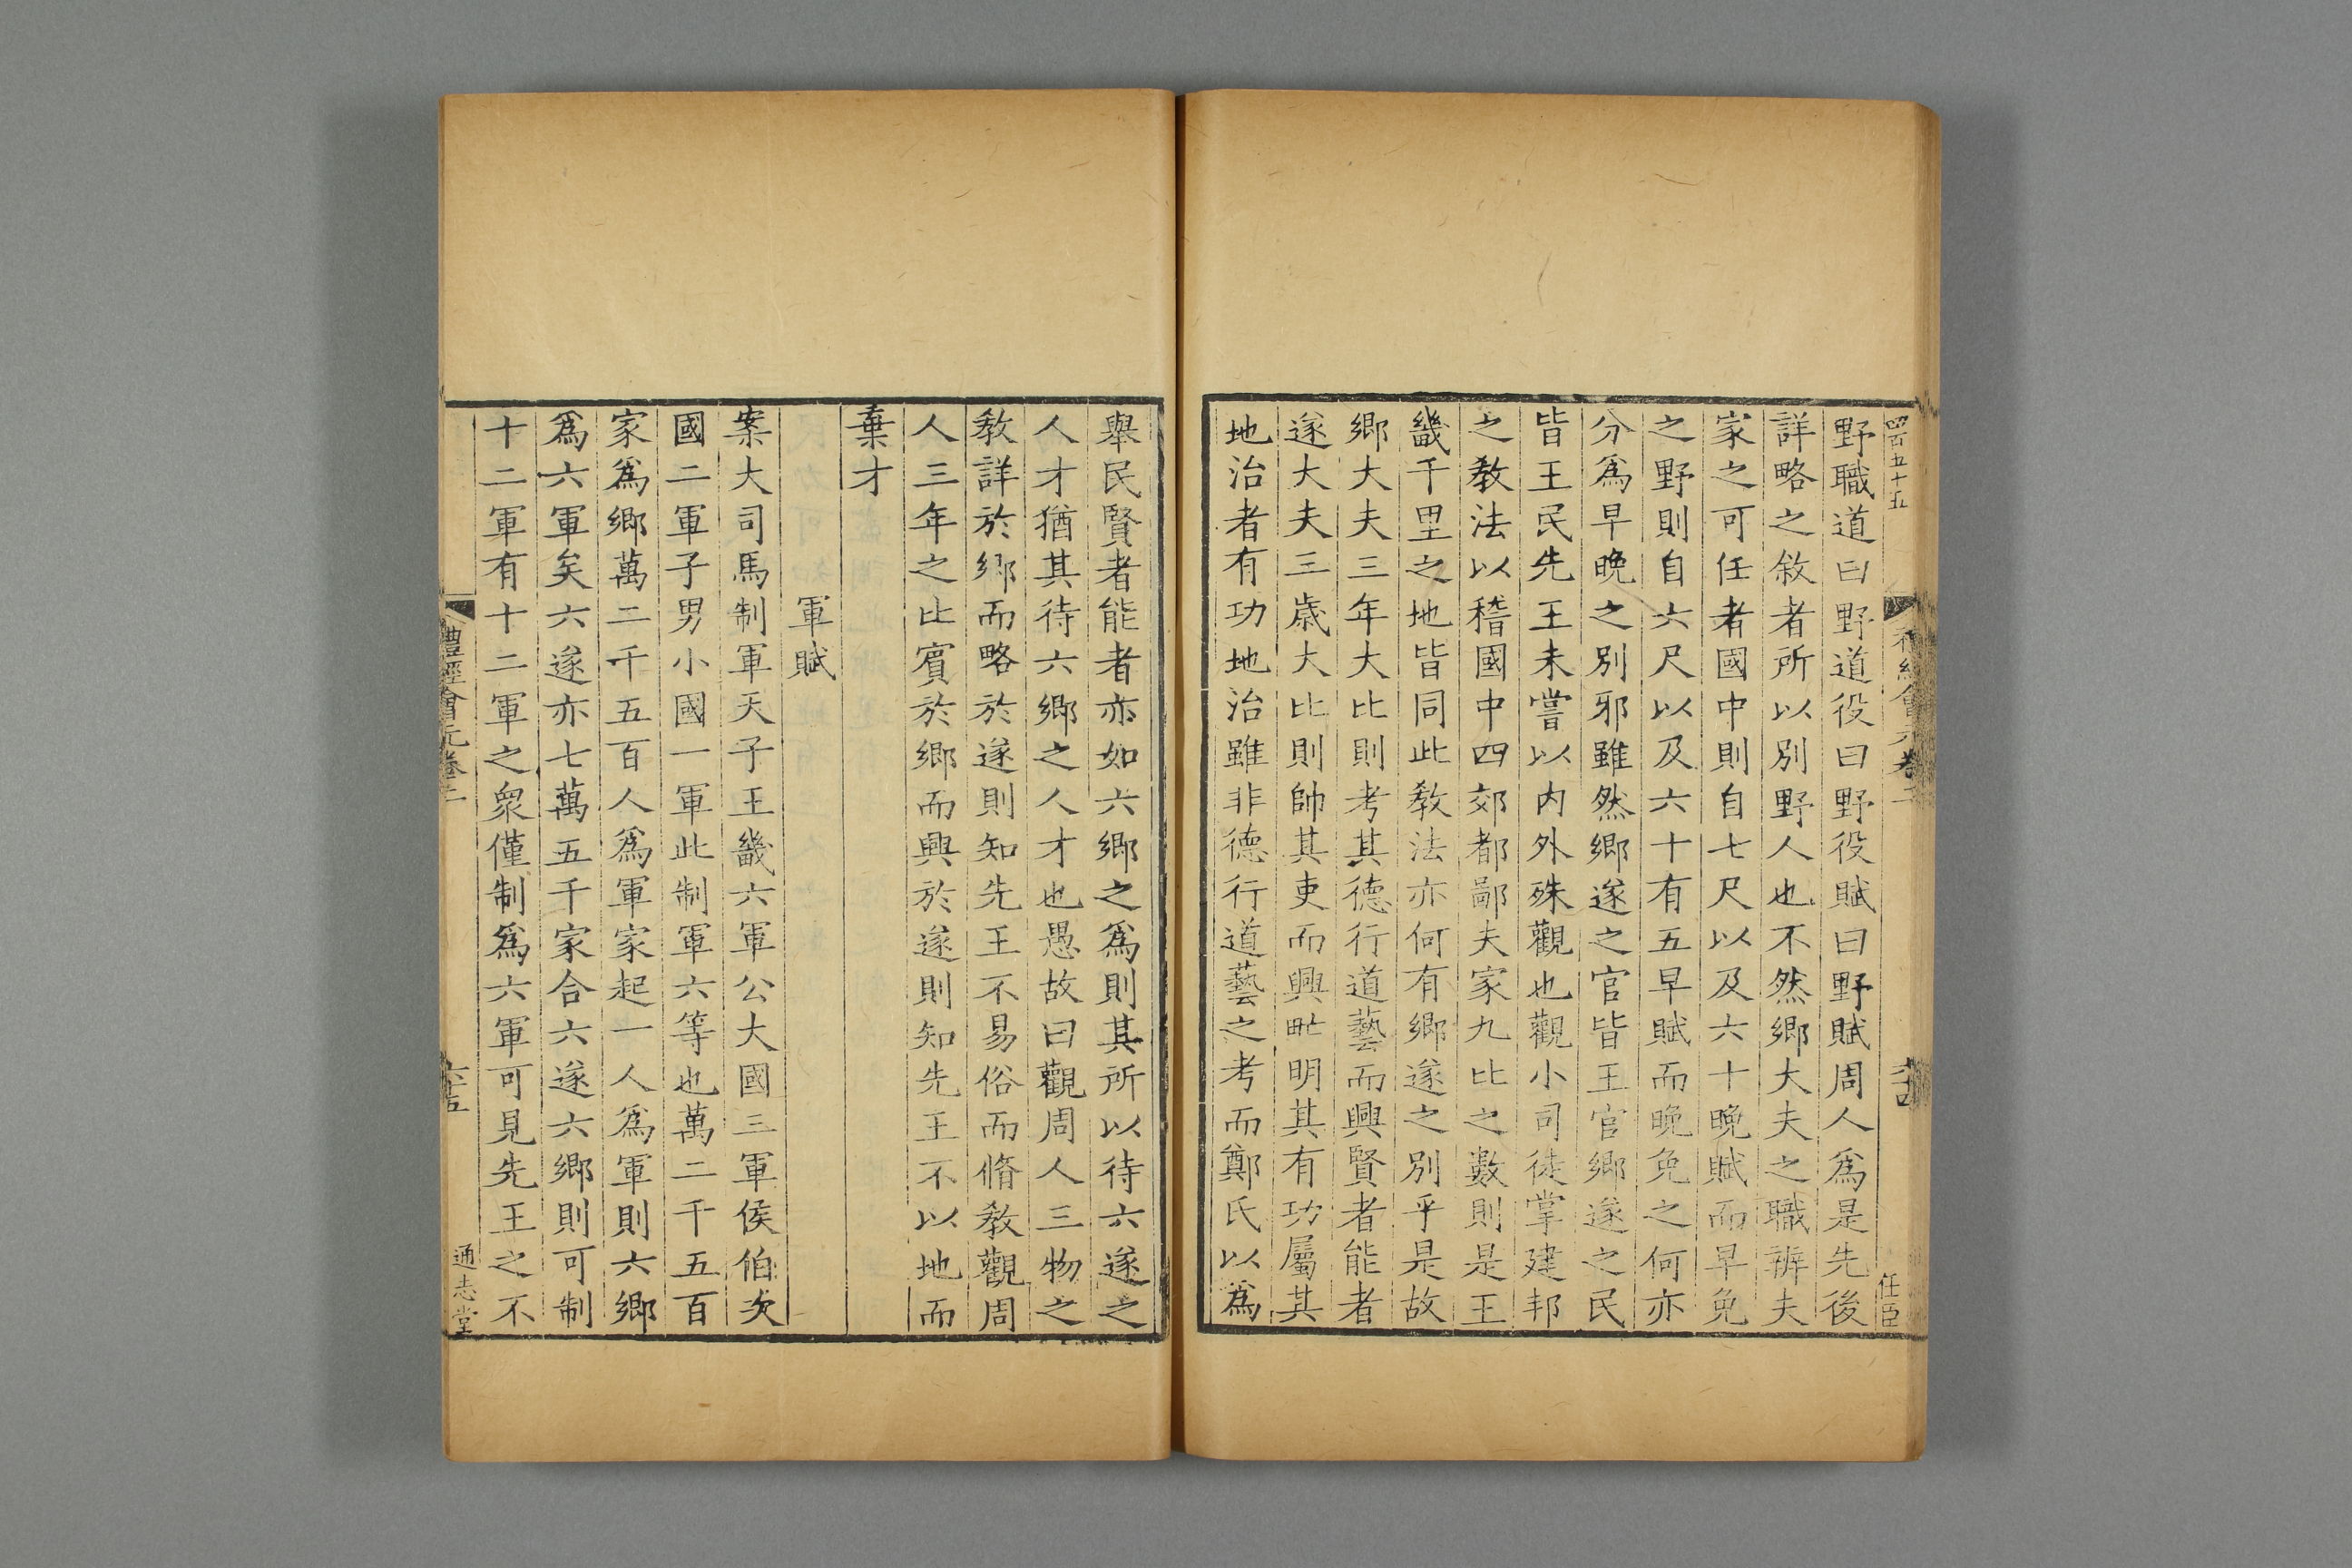 四百五十五
野職道曰野道役曰野役賦曰野賦周人爲是先後
詳略之敘者所以別野人也不然鄉大夫之職辨夫
家之可任者國中則自七尺以及六十晚賦而早免
之野則自六尺以及六十有五早賦而晚免之何亦
分爲早晚之別邪雖然鄉遂之官皆王官鄉遂之民
皆王民先王未嘗以內外殊觀也觀小司徒掌建邦
之教法以稽國中四郊都鄙夫家九比之數則是王
畿千里之地皆同此教法亦何有鄉遂之別乎是故
鄉大夫三年大比則考其德行道藝而興賢者能者
遂大夫三歲大比則帥其吏而興甿明其有功屬其
地治者有功地治雖非德行道藝之考而鄭氏以爲
任臣
舉民賢者能者亦如六鄉之爲則其所以待六遂之
人才猶其待六鄉之人才也愚故曰觀周人三物之
教詳於鄉而略於遂則知先王不易俗而脩教觀周
人三年之比賓於鄉而興於遂則知先王不以地而
棄才
軍賦
案大司馬制軍天子王畿六軍公大國三軍侯伯次
國二軍子男小國一軍此制軍六等也萬二千五百
家爲鄉萬二千五百人爲軍家起一人爲軍則六鄉
爲六軍矣六遂亦七萬五千家合六遂六鄉則可制
十二軍有十二軍之衆僅制爲六軍可見先王之不
禮經會元卷二
六十五
通志堂